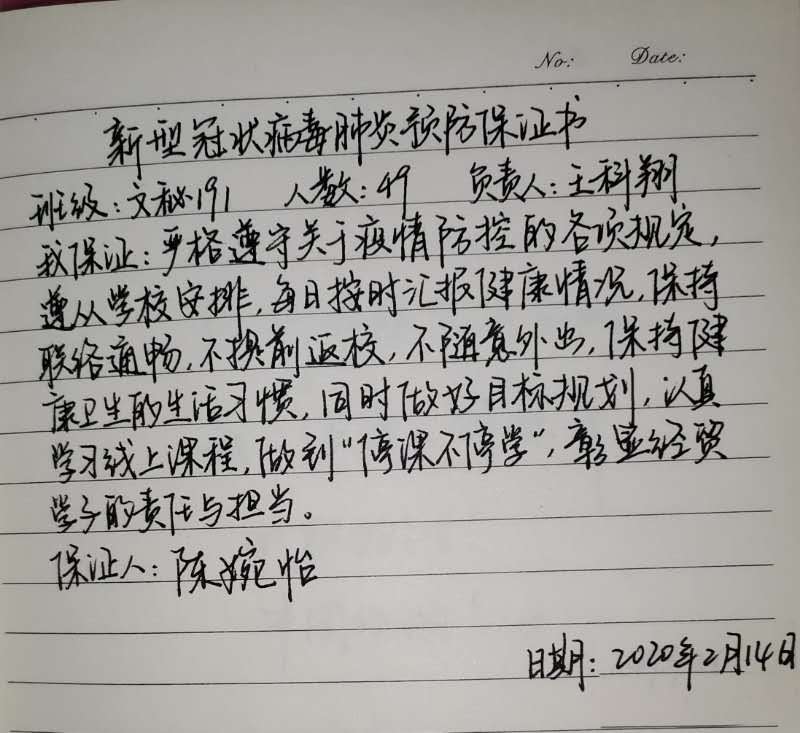 No: Date:
新型冠状病毒肺炎预防保证书
班级：文秘191 人数：49 负责人：王科翔
我保证：严格遵守关于疫情防控的各项规定，
遵从学校安排，每日按时汇报健康情况，保持
联络通畅，不提前返校，不随意外出，保持健
康卫生的生活习惯，同时做好目标规划，认真
学习线上课程，做到"停课不停学"，彰显经贸
学子的责任与担当。
保证人：陈婉怡
日期：2020年2月14日